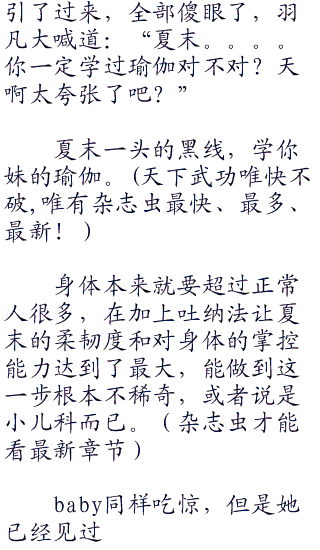 引了过来，全部傻眼了，羽
凡大喊道：“夏末。。。。
你一定学过瑜伽对不对？天
啊太夸张了吧？”
夏末一头的黑线，学你
妹的瑜伽。(天下武功唯快不
破,唯有杂志虫最快、最多、
最新！)
身体本来就要超过正常
人很多，在加上吐纳法让夏
末的柔韧度和对身体的掌控
能力达到了最大，能做到这
一步根本不稀奇，或者说是
小儿科而已。（杂志虫才能
看最新章节）
baby同样吃惊，但是她
已经见过